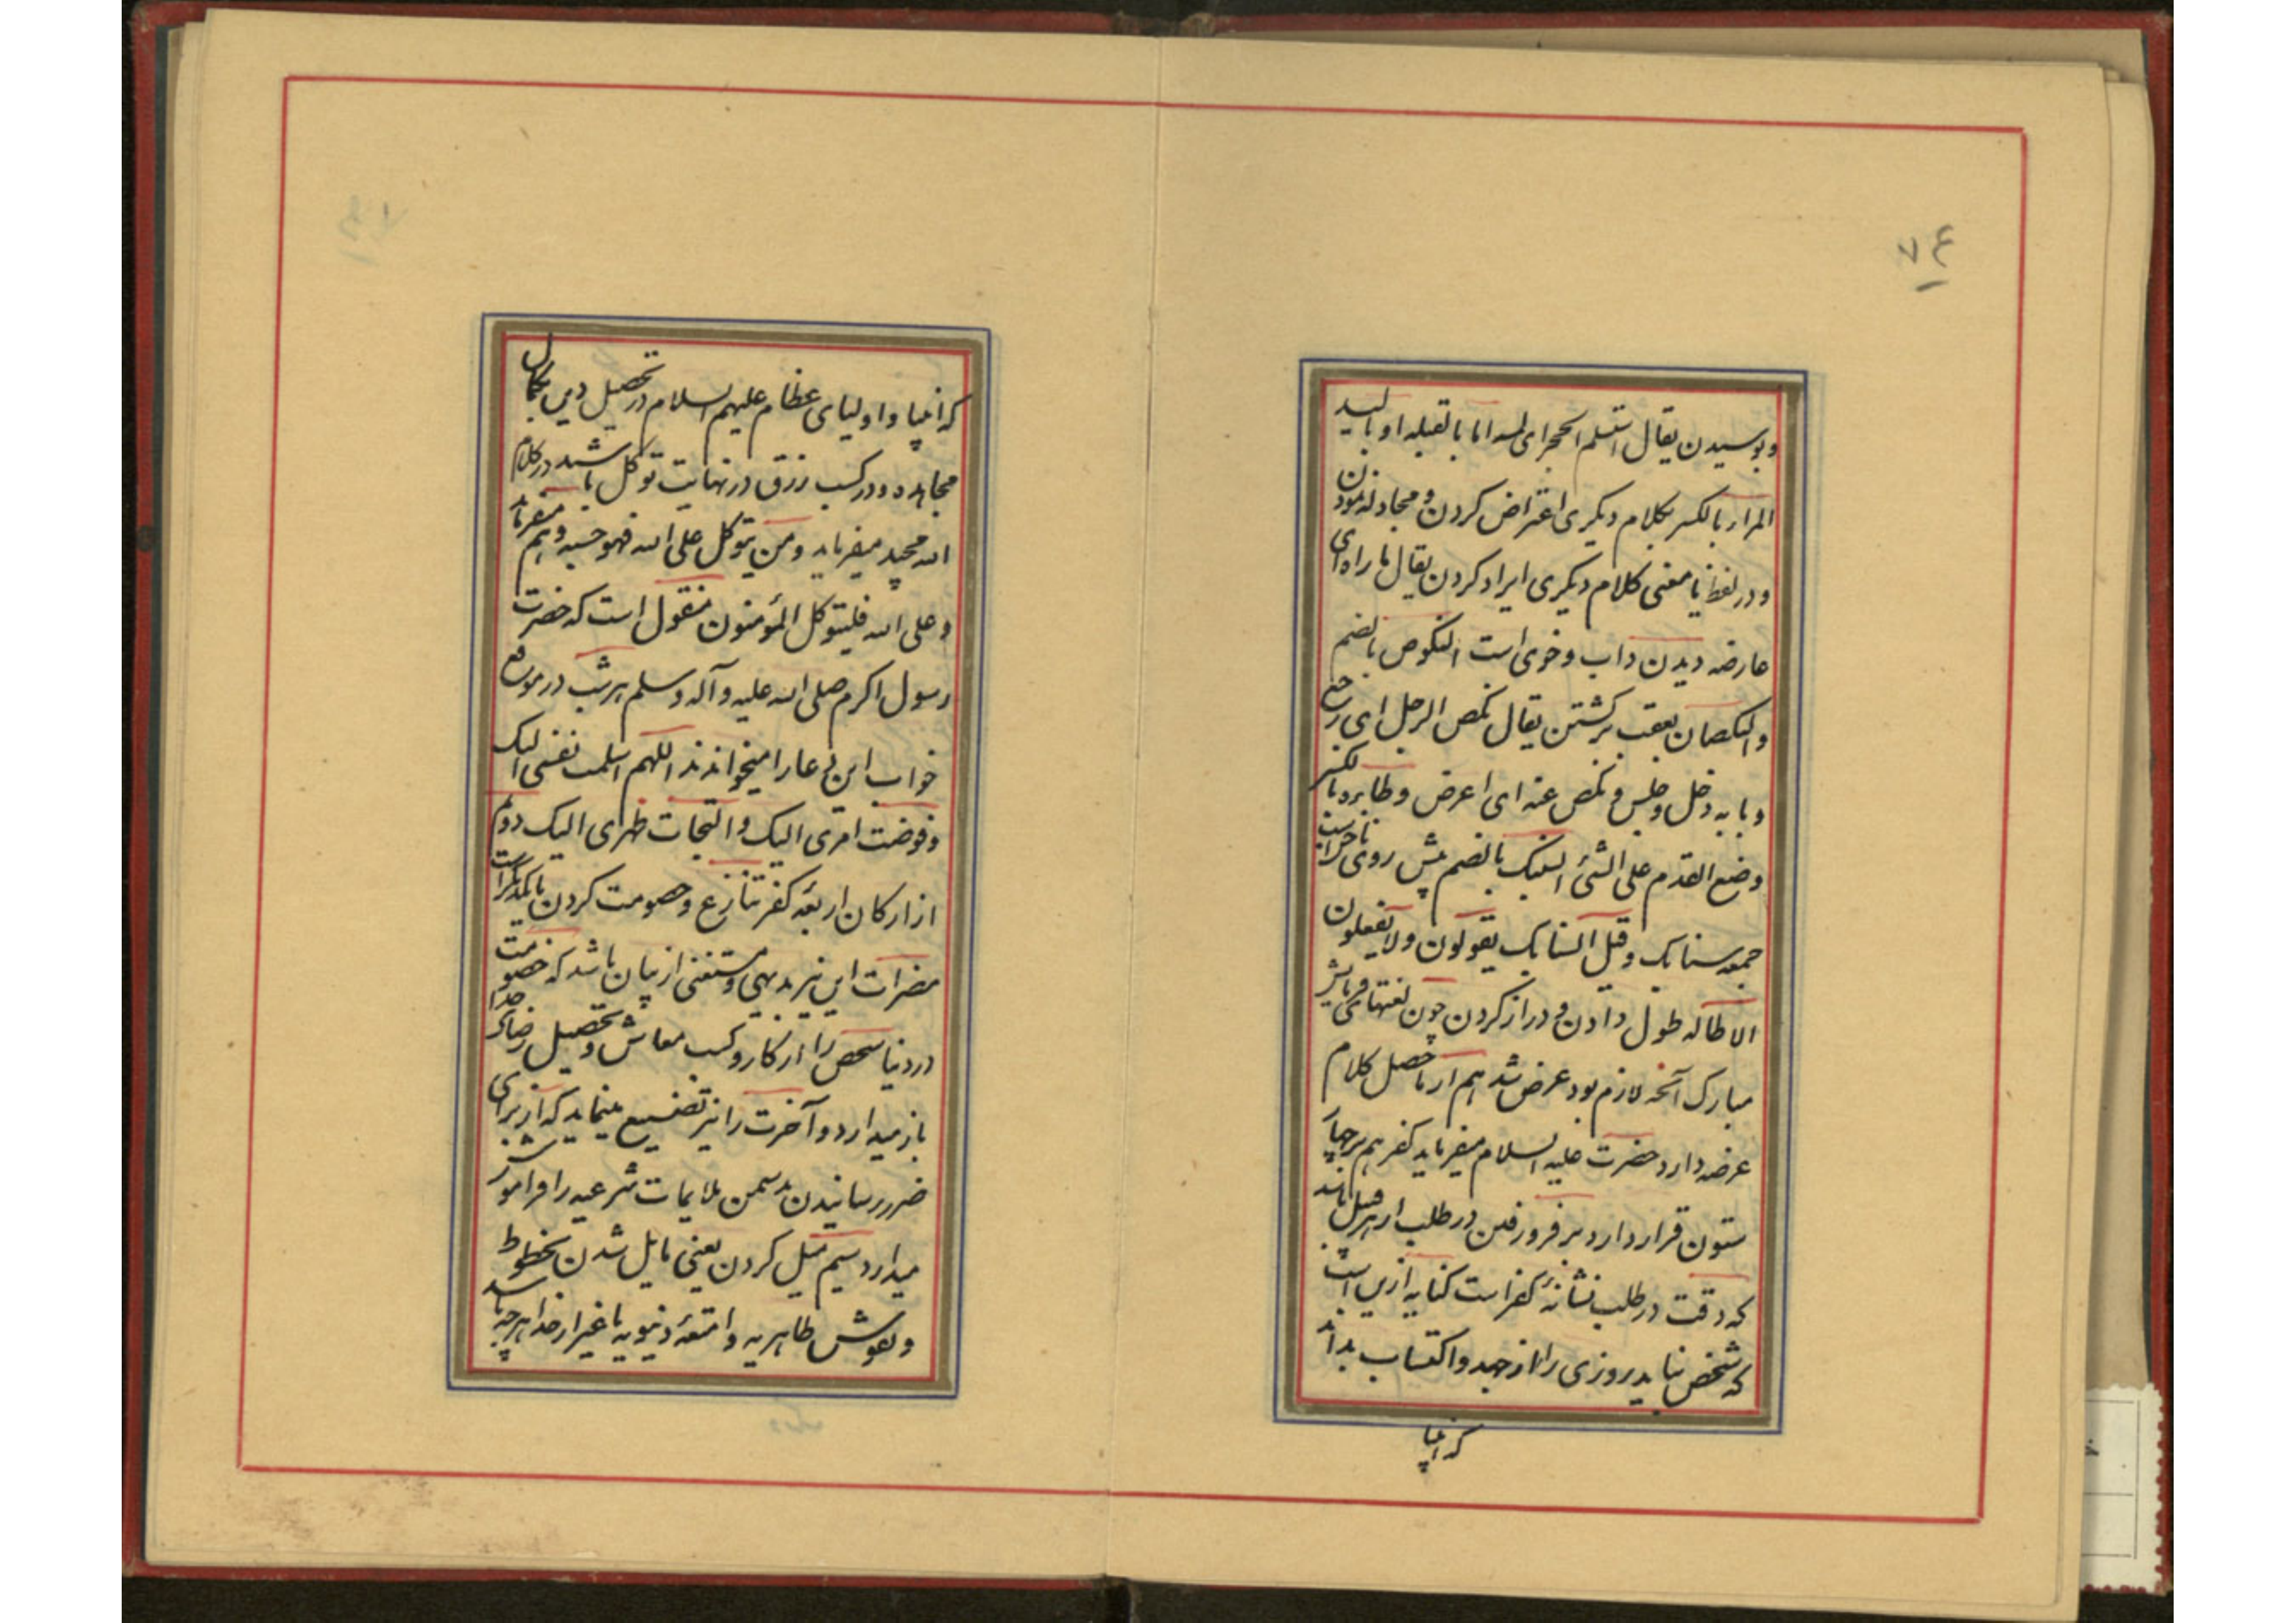 ۷۴
و بوسیدن یقال استلم الحجر ای لمسه اما بالقبله او بالید
المرار بالکسر بکلام دیگری اعتراض کردن و مجادله نمودن
و در لفظ یا معنی کلام دیگری ایراد کردن یقال ماراه ای
عارضه دیدن داب و خوی است النکوص بالضم
والنکصان بعقب برگشتن یقال نکص الرجل ای رجع
و بابه دخل و جلس و نکص عنه ای اعرض وطا بره بالکسر
وضع القدم علی الشئ السنبک بالضم پیش روی
جمعه سنابک و قیل السنابک یقولون ولا یفعلون
الاطاله طول دادن و دراز کردن چون لغتهای
مبارک آنچه لازم بود عرض شد هم از ماحصل کلام
عرضه دارد حضرت علیه السلام میفرماید کفر هم بر چهار
ستون قرار دارد بر فرو رفتن در طلب از هر قبیل باشد
که دقت در طلب نشانهٔ کفر است کنایه ازین است
که شخص نباید روزی را از جهد و اکتساب بداند
که انبیا
که انبیا و اولیای عظام علیهم السلام در تحصیل دین بکمال
مجاهده و در کسب رزق در نهایت توکل باشند در کلام
الله مجید میفرماید و من یتوکل علی الله فهو حسبه و هم میفرماید
و علی الله فلیتوکل المؤمنون منقول است که حضرت
رسول اکرم صلی الله علیه و آله و سلم هر شب در موقع
خواب این دعا را میخواندند اللهم اسلمت نفسی الیک
و فوضت امری الیک و التجات ظهری الیک دوم
از ارکان اربعه کفر تنازع و خصومت کردن با یکدیگر است
مضرات این نیز بدیهی و مستغنی از بیان باشد که خصومت
در دنیا شخص را از کار و کسب معاش و تحصیل رضای خدا
باز میدارد و آخرت را نیز تضییع مینماید که از برای
ضرر رسانیدن بدشمن ملایمات شرعیه را فراموش
میدارد سیم میل کردن یعنی مایل شدن بخطوط
و نقوش ظاهریه و امتعهٔ دنیویه یا غیر از خدا هر چه باشد